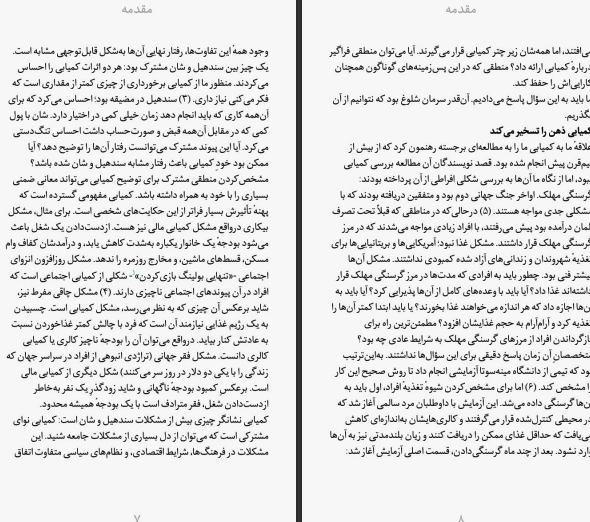 مقدمه
وجود همهٔ این تفاوت‌ها، رفتار نهایی آن‌ها به‌شکل قابل‌توجهی مشابه است.
یک چیز بین سندهیل و شان مشترک بود: هر دو اثرات کمیابی را احساس
می‌کردند. منظور ما از کمیابی برخورداری از چیزی کمتر از مقداری است که
فکر می‌کنی نیاز داری. (۳) سندهیل در مضیقه بود؛ احساس می‌کرد که برای
آن‌همه کاری که باید انجام دهد زمان خیلی کمی در اختیار دارد. شان با پول
کمی که در مقابل آن‌همه قبض و صورت‌حساب داشت احساس تنگ‌دستی
می‌کرد. آیا این پیوند مشترک می‌توانست رفتار آن‌ها را توضیح دهد؟ آیا
ممکن بود خودِ کمیابی باعث رفتار مشابه سندهیل و شان شده باشد؟
مشخص‌کردن منطقی مشترک برای توضیح کمیابی می‌تواند معانی ضمنی
بسیاری را با خود به همراه داشته باشد. کمیابی مفهومی گسترده است که
پهنهٔ تأثیرش بسیار فراتر از این حکایت‌های شخصی است. برای مثال، مشکل
بیکاری درواقع مشکل کمیابی مالی نیز هست. ازدست‌دادن یک شغل باعث
می‌شود بودجهٔ یک خانوار یکباره به‌شدت کاهش یابد، و درآمدشان کفاف وام
مسکن، قسط‌های ماشین، و مخارج روزمره را ندهد. مشکل روزافزون انزوای
اجتماعی -«تنهایی بولینگ بازی‌کردن»- شکلی از کمیابی اجتماعی است که
افراد در آن پیوندهای اجتماعی ناچیزی دارند. (۴) مشکل چاقی مفرط نیز،
شاید برعکس آن چیزی که به نظر می‌رسد، مشکل کمیابی است. چسبیدن
به یک رژیم غذایی نیازمند آن است که فرد با چالش کمتر غذاخوردن نسبت
به عادتش کنار بیاید. درواقع می‌توان آن را بودجهٔ ناچیز کالری یا کمیابی
کالری دانست. مشکل فقر جهانی (تراژدی انبوهی از افراد در سراسر جهان که
زندگی را با یکی دو دلار در روز سر می‌کنند) شکل دیگری از کمیابی مالی
است. برعکسِ کمبود بودجهٔ ناگهانی و شاید زودگذرِ یک نفر به‌خاطر
ازدست‌دادن شغل، فقر مترادف است با یک بودجهٔ همیشه محدود.
کمیابی نشانگر چیزی بیش از مشکلات سندهیل و شان است: کمیابی نوای
مشترکی است که می‌توان از دل بسیاری از مشکلات جامعه شنید. این
مشکلات در فرهنگ‌ها، شرایط اقتصادی، و نظام‌های سیاسی متفاوت اتفاق
۷
مقدمه
می‌افتند، اما همه‌شان زیر چتر کمیابی قرار می‌گیرند. آیا می‌توان منطقی فراگیر
دربارهٔ کمیابی ارائه داد؟ منطقی که در این پس‌زمینه‌های گوناگون همچنان
کارایی‌اش را حفظ کند.
ما باید به این سؤال پاسخ می‌دادیم. آن‌قدر سرمان شلوغ بود که نتوانیم از آن
بگذریم.
کمیابی ذهن را تسخیر می‌کند
علاقهٔ ما به کمیابی ما را به مطالعه‌ای برجسته رهنمون کرد که از بیش از
نیم‌قرن پیش انجام شده بود. قصد نویسندگان آن مطالعه بررسی کمیابی
نبود، اما از نگاه ما آن‌ها به بررسی شکلی افراطی از آن پرداخته بودند:
گرسنگی مهلک. اواخر جنگ جهانی دوم بود و متفقین دریافته بودند که با
مشکلی جدی مواجه هستند. (۵) درحالی‌که در مناطقی که قبلاً تحت تصرف
آلمان درآمده بود پیش می‌رفتند، با افراد زیادی مواجه می‌شدند که در مرز
گرسنگی مهلک قرار داشتند. مشکل غذا نبود؛ آمریکایی‌ها و بریتانیایی‌ها برای
تغذیهٔ شهروندان و زندانی‌های آزاد شده کمبودی نداشتند. مشکل آن‌ها
بیشتر فنی بود. چطور باید به افرادی که مدت‌ها در مرز گرسنگی مهلک قرار
داشته‌اند غذا داد؟ آیا باید با وعده‌های کامل از آن‌ها پذیرایی کرد؟ آیا باید به
آن‌ها اجازه داد که هر اندازه می‌خواهند غذا بخورند؟ یا باید ابتدا کمتر آن‌ها را
تغذیه کرد و آرام‌آرام به حجم غذایشان افزود؟ مطمئن‌ترین راه برای
بازگرداندن افراد از مرزهای گرسنگی مهلک به شرایط عادی چه بود؟
متخصصانِ آن زمان پاسخ دقیقی برای این سؤال‌ها نداشتند. به‌این‌ترتیب
بود که تیمی از دانشگاه مینه‌سوتا آزمایشی انجام داد تا روش صحیح این کار
را مشخص کند. (۶) اما برای مشخص‌کردن شیوهٔ تغذیهٔ افراد، اول باید به
آن‌ها گرسنگی داده می‌شد. این آزمایش با داوطلبان مرد سالمی آغاز شد که
در محیطی کنترل‌شده قرار می‌گرفتند و کالری‌هایشان به‌اندازه‌ای کاهش
می‌یافت که حداقل غذای ممکن را دریافت کنند و زیان بلندمدتی نیز به آن‌ها
وارد نشود. بعد از چند ماه گرسنگی‌دادن، قسمت اصلی آزمایش آغاز شد:
۸